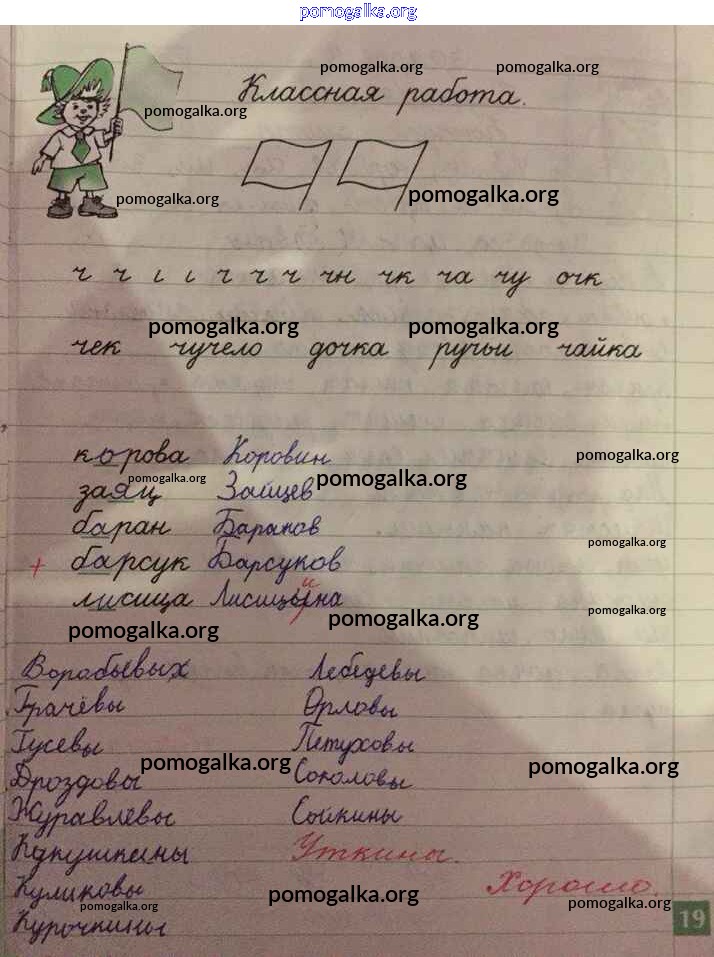 pomogalka.org
pomogalka.org pomogalka.org
Классная работа.
pomogalka.org
pomogalka.org pomogalka.org
ч ч ι ι ч ч ч чн чк ча чу очк
pomogalka.org pomogalka.org
чек чучело дочка ручьи чайка
корова Коровин
pomogalka.org
заяц Зайцев
pomogalka.org pomogalka.org
баран Баранов
pomogalka.org
+ барсук Барсуков
и
лисица Лисицына
pomogalka.org
pomogalka.org pomogalka.org
Воробьевых Лебедевы
Грачёвы Орловы
Гусевы Петуховы
pomogalka.org pomogalka.org
Дроздовы Соколовы
Журавлевы Сойкины
Кукушкины Уткины.
Куликовы Хорошо.
pomogalka.org pomogalka.org pomogalka.org
Курочкины
19